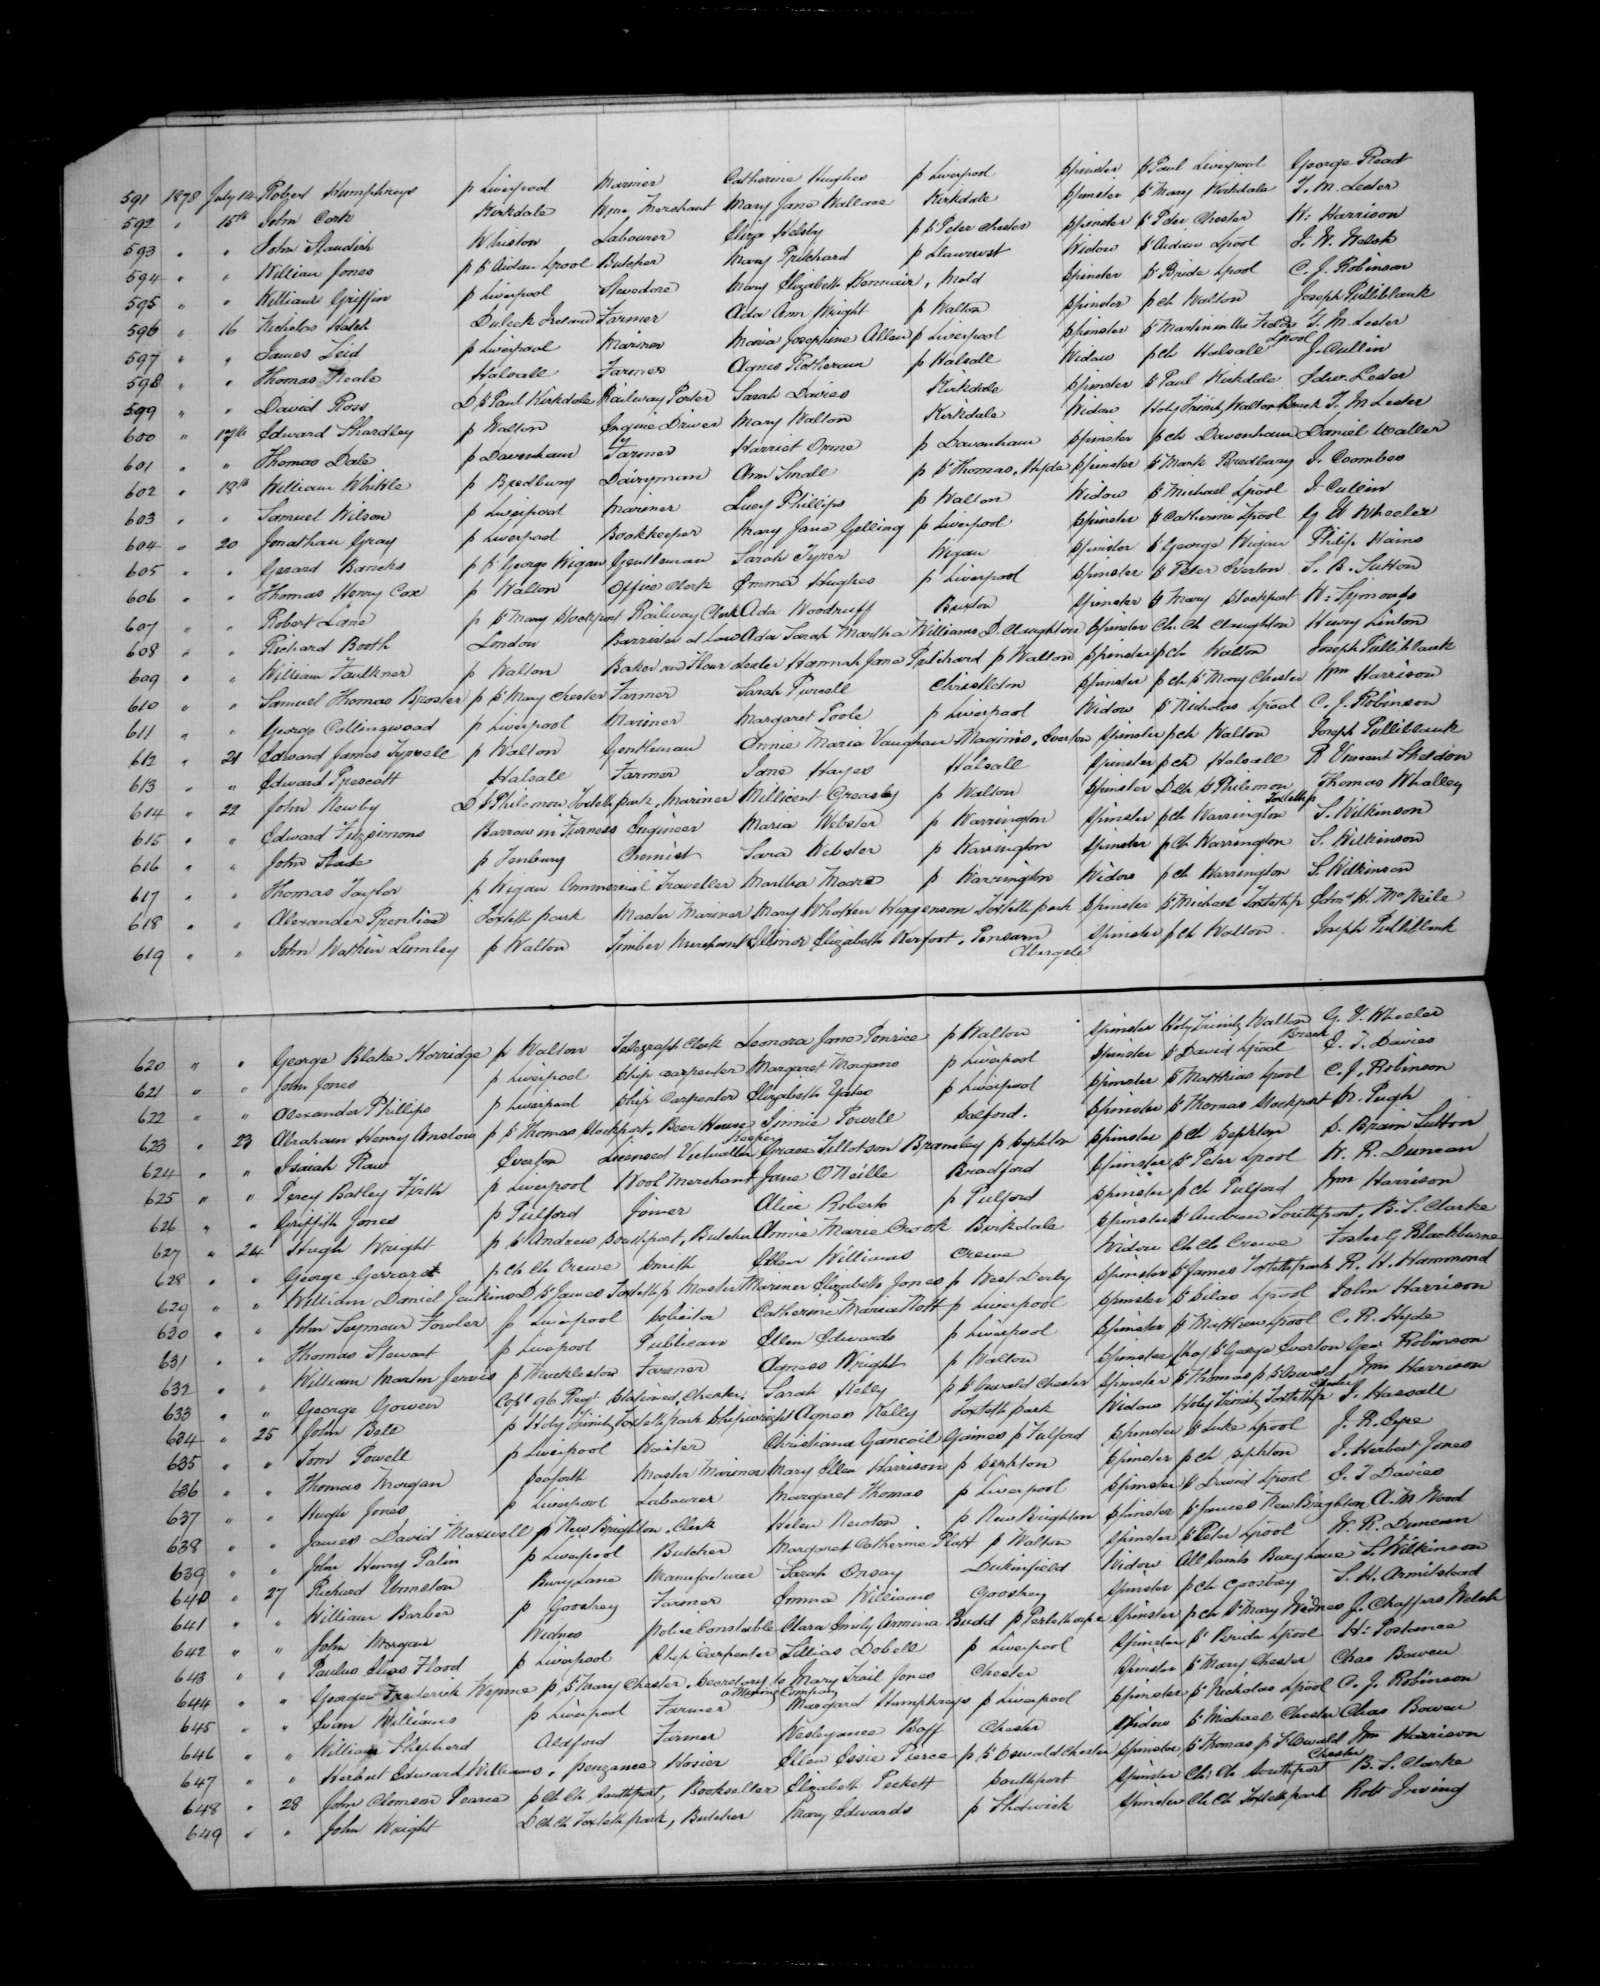 591 1878 July 14 Robert Humphreys p Liverpool Mariner Catherine Hughes p Liverpool Spinster St Paul Liverpool George Read
592 " 15th John Cork Kirkdale Wine Merchant Mary Jane Wallace Kirkdale Spinster St Mary Kirkdale T. M. Lester
593 " " John Standish Whiston Labourer Eliza Helsby p St Peter Chester Spinster St Peter Chester W: Harrison
594 " " William Jones p St Aidan Lpool Butcher Mary Pritchard p Llanrwst Widow St Aidan Lpool J. W. Welsh
595 " " William Griffin p Liverpool Stevedore Mary Elizabeth Kenmair, Mold Spinster St Bride Lpool C. J. Robinson
596 " 16 Nicholas Hatch Duleek Ireland Farmer Ada Ann Wright p Walton Spinster p ch Walton Joseph Pulliblank
597 " " James Leid p Liverpool Mariner Maria Josephine Allen p Liverpool Spinster St Martin in the Fields Lpool T. M. Lester
598 " " Thomas Neale Halsall Farmer Agnes Rotheram p Halsall Widow p ch Halsall J. Cullin
599 " " David Ross D St Paul Kirkdale Railway Porter Sarah Davies Kirkdale Spinster St Paul Kirkdale Edw. Lester
600 " 17th Edward Shardley p Walton Engine Driver Mary Walton Kirkdale Widow Holy Trinity Walton Breck T. M Lester
601 " " Thomas Dale p Davenham Farmer Harriet Orme p Davenham Spinster p ch Davenham Daniel Waller
602 " 18th William Whittle p Bredbury Dairyman Ann Small p St Thomas, Hyde Spinster St Mark Bredbury J. Coombes
603 " " Samuel Wilson p Liverpool Mariner Lucy Phillips p Walton Widow St Michael Lpool J. Cullin
604 " 20 Jonathan Gray p Liverpool Bookkeeper Mary Jane Gelling p Liverpool Spinster St Catherine Lpool G H Wheeler
605 " " Gerard Bancks p St George Wigan Gentleman Sarah Tyrer Wigan Spinster St George Wigan Philip Hains
606 " " Thomas Henry Cox p Walton Office Clerk Emma Hughes p Liverpool Spinster St Peter Everton S. B. Sutton
607 " " Robert Lane p St Mary Stockport Railway Clerk Ada Woodruff Buxton Spinster St Mary Stockport W: Symonds
608 " " Richard Booth London Barrister at Law Ada Sarah Martha Williams D. Claughton Spinster Ch. Ch Claughton Henry Linton
609 " " William Faulkner p Walton Baker and Flour dealer Hannah Jane Pritchard p Walton Spinster p ch Walton Joseph Pulliblank
610 " " Samuel Thomas Broster p St Mary Chester Farmer Sarah Purcell Christleton Spinster p ch St Mary Chester Wm Harrison
611 " " George Collingwood p Liverpool Mariner Margaret Poole p Liverpool Widow St Nicholas Lpool C. J. Robinson
612 " 21 Edward James Tyrrell p Walton Gentleman Annie Maria Vaughan Maginis, Everton Spinster p ch Walton Joseph Pulliblank
613 " " Edward Prescott Halsall Farmer Jane Hayes Halsall Spinster p ch Halsall R Vincent Sheldon
614 " 22 John Newby D St Philemon Toxteth park, Mariner Millicent Greasley p Walton Spinster D ch St Philemon Toxteth p Thomas Whalley
615 " " Edward Fitzsimons Barrow in Furness Engineer Maria Webster p Warrington Spinster p ch Warrington S. Wilkinson
616 " " John Slade p Tenbury Chemist Sara Webster p Warrington Spinster p ch Warrington S. Wilkinson
617 " " Thomas Taylor p Wigan Commercial Traveller Martha Moore p Warrington Widow p ch Warrington S. Wilkinson
618 " " Alexander Prentice Toxteth park Master Mariner Mary Whatten Higgenson Toxteth park Spinster St Michael Toxteth p Edwd H. McNeile
619 " " John Watkin Lumley p Walton Timber Merchant Ellinor Elizabeth Kerfoot, Pensarn Abergele Spinster p ch Walton Joseph Pulliblank
620 " " George Blake Horridge p Walton Telegraph Clerk Leonora Jane Penrice p Walton Spinster Holy Trinity Walton Breck G. H. Wheeler
621 " " John Jones p Liverpool Ship Carpenter Margaret Morgans p Liverpool Spinster St David Lpool E. T. Davies
622 " " Alexander Phillips p Liverpool Ship Carpenter Elizabeth Yates p Liverpool Spinster St Matthias Lpool C. J. Robinson
623 " 23 Abraham Henry Anslow p St Thomas Stockport, Beer House Keeper Jinnie Powell Salford. Spinster St Thomas Stockport M. Pugh
624 " " Isaiah Raw Everton Licensed Victualler Grace Tillotson Bramley p Sephton Spinster p ch Sephton S. Brain Sutton
625 " " Percy Batley Firth p Liverpool Wool Merchant Jane O'Neille Bradford Spinster St Peter Lpool W. R. Duncan
626 " " Griffith Jones p Pulford Joiner Alice Roberts p Pulford Spinster p ch Pulford Wm Harrison
627 " 24 Hugh Wright p St Andrew Southport, Butcher Annie Marie Crook Birkdale Spinster St Andrew Southport. B. S. Clarke
628 " " George Gerrard p Ch Ch Crewe Smith Ellen Williams Crewe Widow Ch Ch Crewe Foster G Blackburne
629 " " William Daniel Jenkins D St James Toxteth p Master Mariner Elizabeth Jones p West Derby Spinster St James Toxteth park R. H. Hammond
630 " " John Seymour Fowler p Liverpool Solicitor Catherine Maria Nott p Liverpool Spinster St Silas Lpool John Harrison
631 " " Thomas Stewart p Liverpool Publican Ellen Edwards p Liverpool Spinster St Matthew Lpool C. R. Hyde
632 " " William Martin Jervis p Mucklestone Farmer Agness Wright p Walton Spinster St George Everton Geo Robinson
633 " " George Gowen Capt 96 Regt Stationed Chester. Sarah Kelly p St Oswald Chester Spinster St Thomas p St Oswald Chester Wm Harrison
634 " 25 John Bell p Holy Trinity Toxteth park Shipwright Agnes Kelly Toxteth park Widow Holy Trinity Toxteth p J. Hassall
635 " " Tom Powell p Liverpool Waiter Christiana Games p Fulford Spinster St Luke Lpool J. R. Eyre
636 " " Thomas Morgan Seaforth Master Mariner Mary Ellen Harrison p Sephton Spinster p ch Sephton J. Herbert Jones
637 " " Hugh Jones p Liverpool Labourer Margaret Thomas p Liverpool Spinster St David Lpool E. T Davies
638 " " James David Maxwell p New Brighton, Clerk Helen Newton p New Brighton Spinster St James New Brighton A. M. Wood
639 " " John Henry Palin p Liverpool Butcher Margaret Catherine Platt p Walton Spinster St Peter Lpool W. R. Duncan
640 " 27 Richard Urmston Bury Lane Manufacturer Sarah Onsay Dukinfield Widow All Saints Bury Lane S. Wilkinson
641 " " William Barber p Goostrey Farmer Emma Williams Goostrey Spinster p ch Goostrey S. H. Armitstead
642 " " John Morgan Widnes Police Constable Clara Emily Armina Budd p Perlethorpe Spinster p ch St Mary Widnes J. Chaffers Welsh
643 " " Paulus Elias Flood p Liverpool Ship Carpenter Lillias Dobell p Liverpool Spinster St Bride Lpool H: Postance
644 " " George Frederick Wynne p St Mary Chester, Secretary to a Mining Company Mary Trail Jones Chester Spinster St Mary Chester Chas Bowen
645 " " Evan Williams p Liverpool Farmer Margaret Humphreys p Liverpool Spinster St Nicholas Lpool C. J. Robinson
646 " " William Shepherd Aldford Farmer Wesleyance Roff Chester Widow St Michael Chester Chas Bowen
647 " " Herbert Edward Williams, Penzance Hosier Ellen Essie Pierce p St Oswald Chester Spinster St Thomas p St Oswald Chester Wm Harrison
648 " 28 John Clemson Pearce p Ch Ch Southport, Bookseller Elizabeth Peckett Southport Spinster Ch Ch Southport B. S. Clarke
649 " " John Wright D Ch Ch Toxteth park, Butcher Mary Edwards p Shotwick Spinster Ch Ch Toxteth park Robt Irving